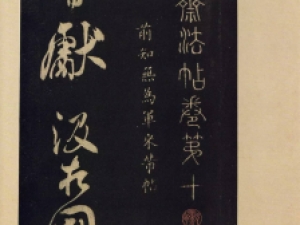 齋法帖卷第十
前知無為軍米芾帖
獻汲